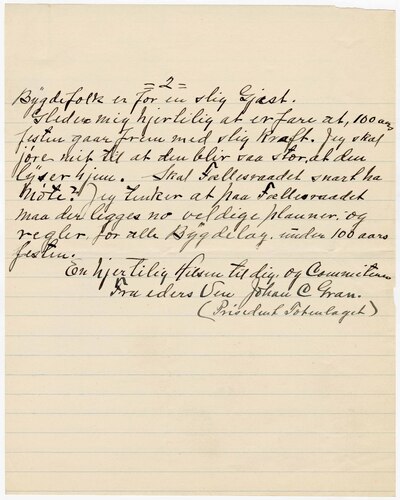 =2=
Bÿgdefolk er for en slig Gjæst.
Gleder mig hjertilig at erfare at, 100 aars
festen gaar frem med slig Kraft. Jeg skal
jöre mit til at den blir saa stor, at den
lÿser hjem. Skal Fællesraadet snart ha
Möte? Jeg tenker at paa Fællesraadet
maa der ligges no veldige planner og
regler for alle Bÿgdelag under 100 aars
festen.
En hjertilig Hilsen til dig og Commiteen
Fra eders Ven Johan C Gran.
(Prisident Totenlaget)